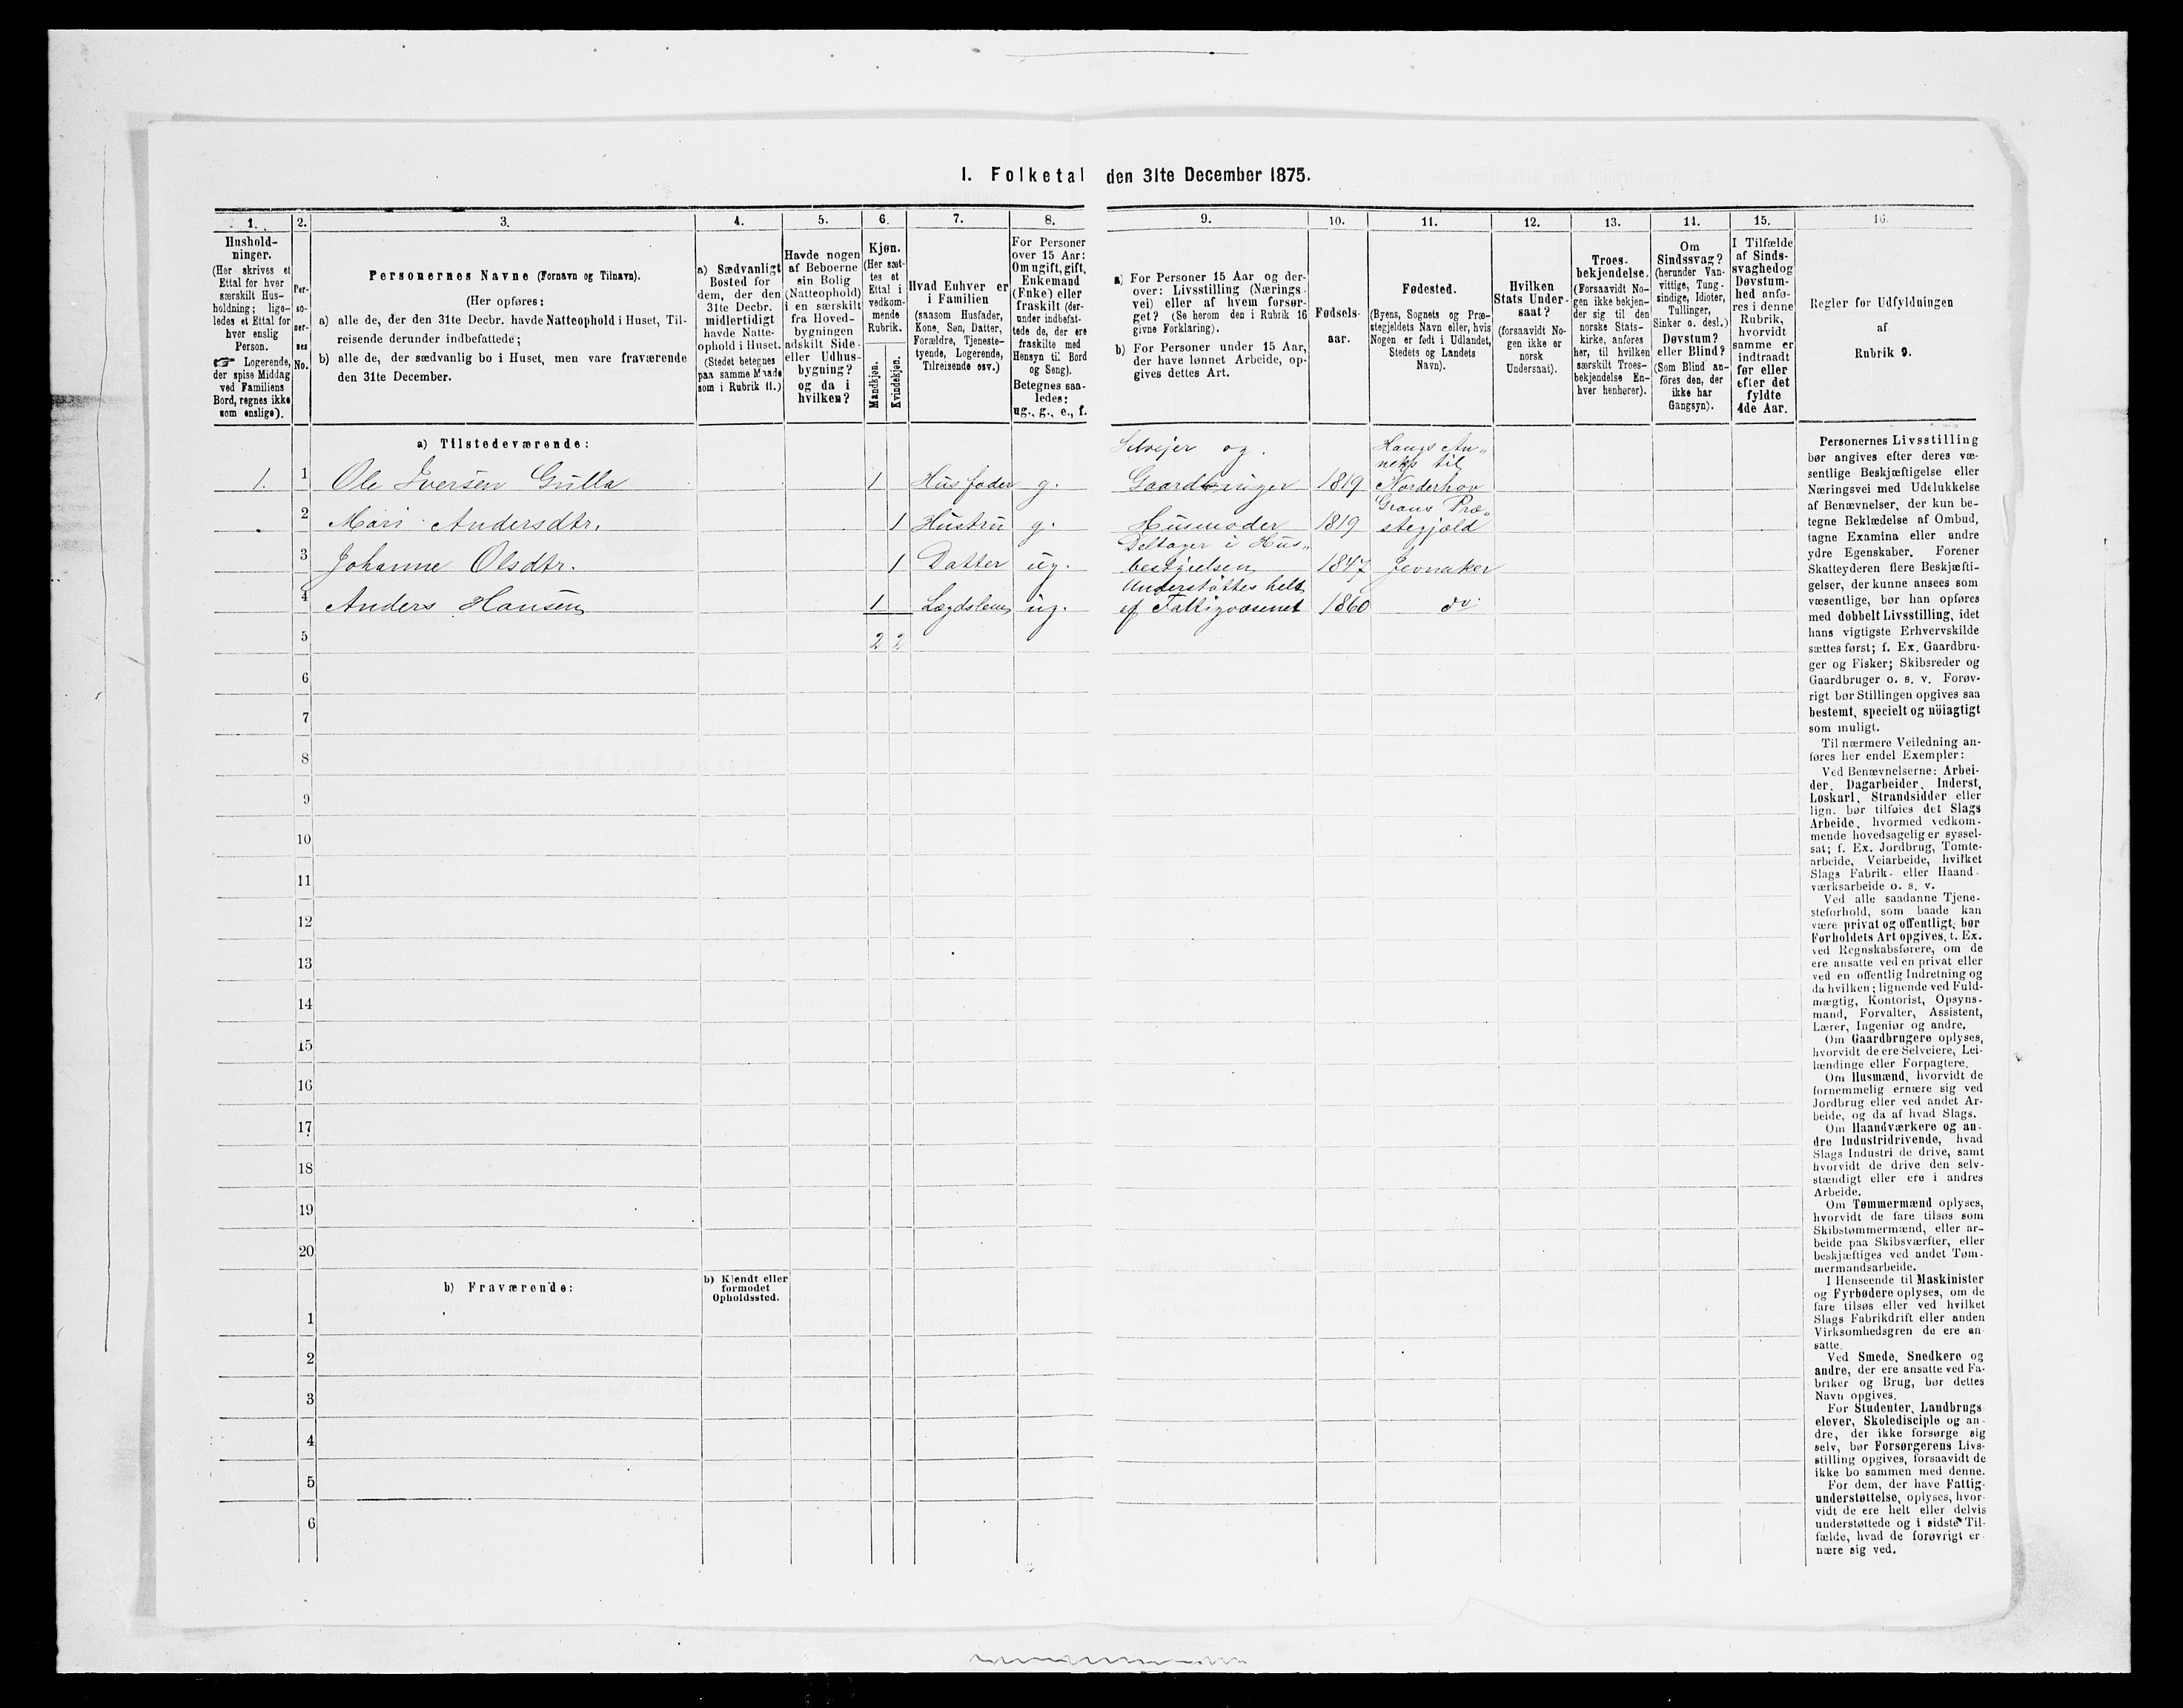 I. Folketal den 31te December 1875.
1. 2. 3. 4. 5. 6. 7. 8. 9. 10. 11. 12. 13. 14. 15. 16.
Hushold-
ninger.
(Her skrives et
Ettal for hver
særskilt Hus-
holdning; lige-
ledes et Ettal for
hver enslig
Person.
☞ Logerende,
der spise Middag
ved Familiens
Bord, regnes ikke
som enslige).
Per-
so-
ner-
nes
No.
Personernes Navne (Fornavn og Tilnavn).
(Her opføres:
a) alle de, der den 31te Decbr. havde Natteophold i Huset, Til-
reisende derunder indbefattede;
b) alle de, der sædvanlig bo i Huset, men vare fraværende
den 31te December.
a) Sædvanligt
Bosted for
dem, der den
31te Decbr.
midlertidigt
havde Natte-
ophold i Huset.
(Stedet betegnes
paa samme Maade
som i Rubrik 11.)
Havde nogen
af Beboerne
sin Bolig
(Natteophold)
i en særskilt
fra Hoved-
bygningen
adskilt Side-
eller Udhus-
bygning?
og da i
hvilken?
Kjøn.
(Her sæt-
tes et
Ettal i
vedkom-
mende
Rubrik.
Mandkjøn.
Kvindekjøn.
Hvad Enhver er
i Familien
(saasom Husfader,
Kone, Søn, Datter,
Forældre, Tjeneste-
tyende, Logerende,
Tilreisende osv.)
For Personer
over 15 Aar:
Om ugift, gift,
Enkemand
(Enke) eller
fraskilt (der-
under indbefat-
tede de, der ere
fraskilte med
Hensyn til Bord
og Seng).
Betegnes saa-
ledes:
ug., g., e., f.
a) For Personer 15 Aar og der-
over: Livsstilling (Nærings-
vei) eller af hvem forsør-
get? (Se herom den i Rubrik 16
givne Forklaring).
b) For Personer under 15 Aar,
der have lønnet Arbeide, op-
gives dettes Art.
Fødsels-
aar.
Fødested.
(Byens, Sognets og Præ-
stegjeldets Navn eller, hvis
Nogen er født i Udlandet,
Stedets og Landets
Navn).
Hvilken
Stats Under-
saat?
(forsaavidt No-
gen ikke er
norsk
Undersaat).
Troes-
bekjendelse.
(Forsaavidt No-
gen ikke bekjen-
der sig til den
norske Stats-
kirke, anføres
her, til hvilken
særskilt Troes-
bekjendelse En-
hver henhører).
Om
Sindssvag?
(herunder Van-
vittige, Tung-
sindige, Idioter,
Tullinger,
Sinker o. desl.)
Døvstum?
eller Blind?
(Som Blind an-
føres den, der
ikke har
Gangsyn).
I Tilfælde
af Sinds-
svaghed og
Døvstum-
hed anfø-
res i denne
Rubrik,
hvorvidt
samme er
indtraadt
før eller
efter det
fyldte
4de Aar.
Regler for Udfyldningen
af
Rubrik 9.
a) Tilstedeværende:
Selvejer og Haugs An-
neks til
1. 1 Ole Iversen Gulla 1 Husfader g. Gaardbruger 1819 Norderhov
Grans Præ-
2 Mari Andersdtr. 1 Hustru g. Husmoder 1819 stegjæld
Deltager i Hus-
3 Johanne Olsdtr. 1 Datter ug. bestyrelsen 1847 Jevnaker
Understøttes helt
4 Anders Hansen 1 Lægdslem ug. af Fattigvæsenet 1860 do
5 2 2
6
7
8
9
10
11
12
13
14
15
16
17
18
19
20
b) Fraværende:
b) Kjendt eller
formodet
Opholdssted.
1
2
3
4
5
6
Personernes Livsstilling
bør angives efter deres væ-
sentlige Beskjæftigelse eller
Næringsvei med Udelukkelse
af Benævnelser, der kun be-
tegne Beklædelse af Ombud,
tagne Examina eller andre
ydre Egenskaber. Forener
Skatteyderen flere Beskjæfti-
gelser, der kunne ansees som
væsentlige, bør han opføres
med dobbelt Livsstilling, idet
hans vigtigste Erhvervskilde
sættes først; f. Ex. Gaardbru-
ger og Fisker; Skibsreder og
Gaardbruger o. s. v. Forøv-
rigt bør Stillingen opgives saa
bestemt, specielt og nöiagtigt
som muligt.
Til nærmere Veiledning an-
føres her endel Exempler:
Ved Benævnelserne: Arbei-
der, Dagarbeider, Inderst,
Løskarl, Strandsidder eller
lign. bør tilføies det Slags
Arbeide, hvormed vedkom-
mende hovedsagelig er syssel-
sat; f. Ex. Jordbrug, Tomte-
arbeide, Veiarbeide, hvilket
Slags Fabrik- eller Haand-
værksarbeide o. s. v.
Ved alle saadanne Tjene-
steforhold, som baade kan
være privat og offentligt, bør
Forholdets Art opgives, t. Ex.
ved Regnskabsførere, om de
ere ansatte ved en privat eller
ved en offentlig Indretning og
da hvilken; lignende ved Fuld-
mægtig, Kontorist, Opsyns-
mand, Forvalter, Assistent,
Lærer, Ingeniør og andre.
Om Gaardbrugere oplyses,
hvorvidt de ere Selveiere, Lei-
lændinge eller Forpagtere.
Om Husmænd, hvorvidt de
fornemmelig ernære sig ved
Jordbrug eller ved andet Ar-
beide, og da af hvad Slags.
Om Haandværkere og an-
dre Industridrivende, hvad
Slags Industri de drive, samt
hvorvidt de drive den selv-
stændigt eller ere i andres
Arbeide.
Om Tømmermænd oplyses,
hvorvidt de fare tilsøs som
Skibstømmermænd, eller ar-
beide paa Skibsværfter, eller
beskjæftiges ved andet Tøm-
mermandsarbeide.
I Henseende til Maskinister
og Fyrbødere oplyses, om de
fare tilsøs eller ved hvilket
Slags Fabrikdrift eller anden
Virksomhedsgren de ere an-
satte.
Ved Smede, Snedkere og
andre, der ere ansatte ved Fa-
briker og Brug, bør dettes
Navn opgives.
For Studenter, Landbrugs-
elever, Skoledisciple og an-
dre, der ikke forsørge sig
selv, bør Forsørgerens Livs-
stilling opgives, forsaavidt de
ikke bo sammen med denne.
For dem, der have Fattig-
understøttelse, oplyses, hvor-
vidt de ere helt eller delvis
understøttede og i sidste Til-
fælde, hvad de forøvrigt er-
nære sig ved.